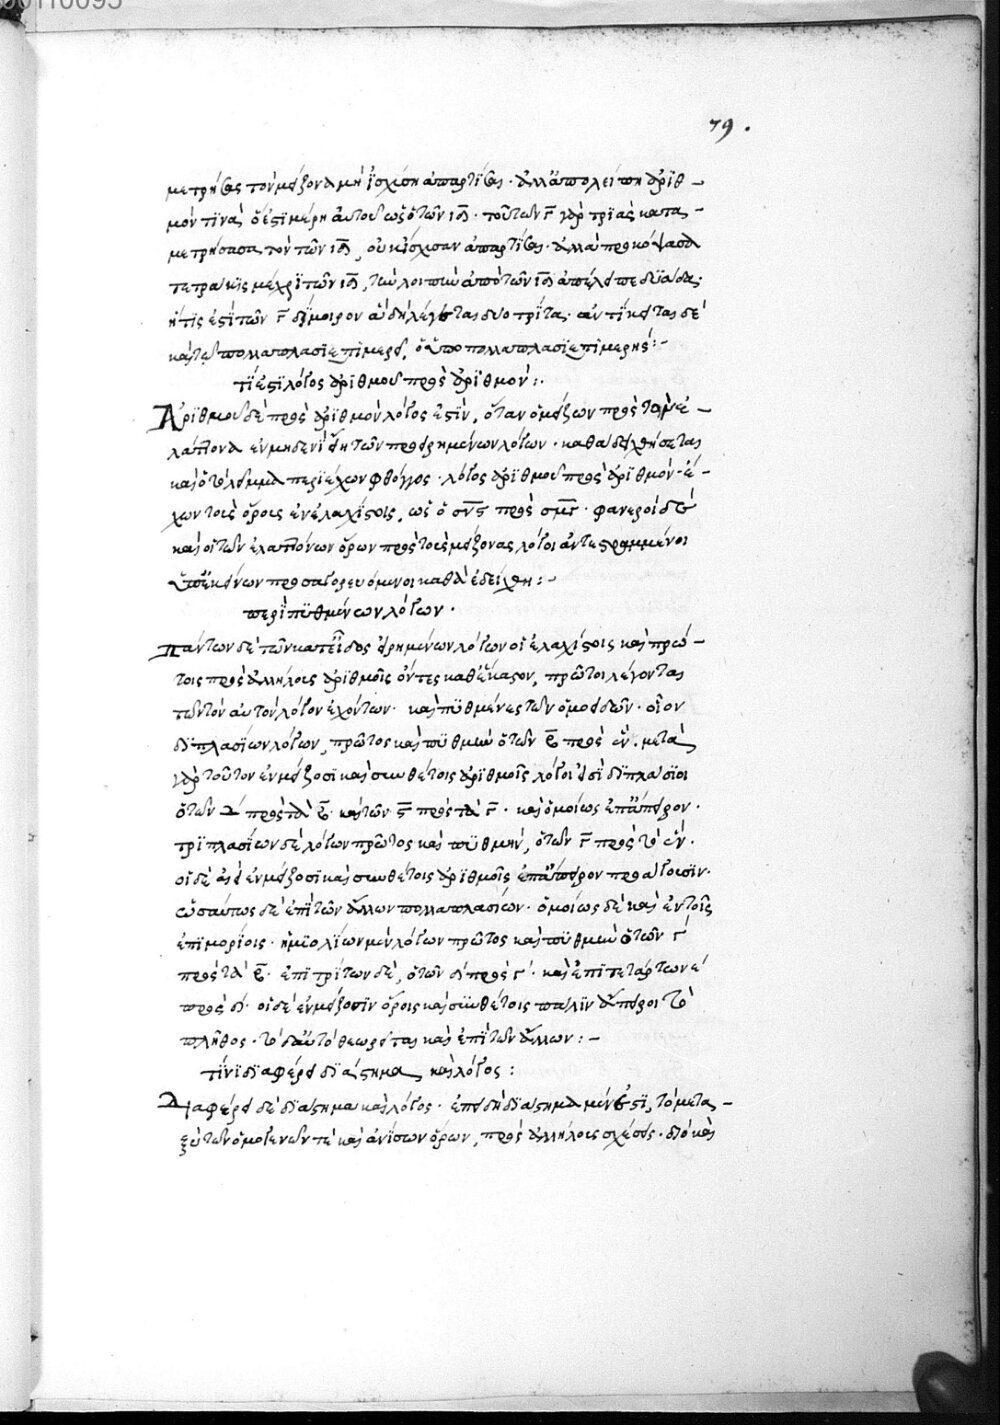 79.
μετρήσας τὸν μείζονα μὴ ἰσχύσῃ ἀπαρτίσαι. ἀλλ' ἀπολείπῃ ἀριθ-
μόν τινα, ὅ ἐστι μέρη αὐτοῦ ὡς ὁ τῶν ια. τοῦ τῶν γ̄. γὰρ τριὰς κατα-
μετρήσασα τὸν τῶν ια, οὐκ ἴσχυσεν ἀπαρτίσαι. ἀλλὰ προκόψασα
τετράκις μέχρι τῶν ια, τὴν λοιπὴν ἀπὸ τῶν ια ἀπέλειπε δυάδα.
ἥτις ἐστὶ τῶν γ̄ δίμοιρον ἃ δὴ λέγεται δύο τρίτα. ἀντίκειται δὲ
καὶ τῷ πολλαπλασιεπιμερεῖ, ὁ ὑποπολλαπλασιεπιμερής:-
τί ἐστι λόγος ἀριθμοῦ πρὸς ἀριθμόν:.
Ἀριθμοῦ δὲ πρὸς ἀριθμὸν λόγος ἐστὶν, ὅταν ὁ μείζων πρὸς τὸν ἐ-
λάττονα ἐν μηδενὶ ᾖ τῶν προειρημένων λόγων. καθὰ δειχθήσεται
καὶ ὁ τὸ λεῖμμα περιέχων φθόγγος. λόγος ἀριθμοῦ πρὸς ἀριθμὸν ἐ-
χων τοὺς ὅρους ἐν ἐλαχίστοις, ὡς ὁ σνς πρὸς σμγ. φανεροὶ δὲ
καὶ οἱ τῶν ἐλαττόνων ὅρων πρὸς τοὺς μείζονας λόγοι ἀντεστραμμένοι
ὑπ' ἐκείνων προσαγορευόμενοι καθὰ ἐδείχθη:-
περὶ πυθμένων λόγων.
Πάντων δὲ τῶν κατ' εἶδος εἰρημένων λόγων οἱ ἐλαχίστοις καὶ πρώ-
τοις πρὸς ἀλλήλους ἀριθμοῖς ὄντες καθ' ἕκαστον, πρῶτοι λέγονται
τῶν τὸν αὐτὸν λόγον ἐχόντων. καὶ πυθμένες τῶν ὁμοειδῶν. οἷον
διπλασίων λόγων, πρῶτος καὶ πυθμὴν ὁ τῶν β̄ πρὸς ἕν. μετὰ
γὰρ τοῦτον ἐν μείζοσι καὶ συνθέτοις ἀριθμοῖς λόγοι εἰσὶ διπλάσιοι
ὁ τῶν δ̄ πρὸς τὰ β̄. καὶ τῶν ς̄ πρὸς τὰ γ̄. καὶ ὁμοίως ἐπ' ἄπειρον.
τριπλασίων δὲ λόγων πρῶτος καὶ πυθμὴν, ὁ τῶν γ̄ πρὸς τὸ ἕν.
οἱ δὲ ἀεὶ ἐν μείζοσι καὶ συνθέτοις ἀριθμοῖς ἐπ' ἄπειρον προάγουσιν.
ὡσαύτως δὲ ἐπὶ τῶν ἄλλων πολλαπλασίων. ὁμοίως δὲ καὶ ἐν τοῖς
ἐπιμορίοις. ἡμιολίων μὲν λόγων πρῶτος καὶ πυθμὴν ὁ τῶν γ
πρὸς τὰ β̄. ἐπιτρίτων δὲ, ὁ τῶν δ πρὸς γ. καὶ ἐπιτετάρτων ε
πρὸς δ. οἱ δὲ ἐν μείζοσιν ὅροις καὶ συνθέτοις πάλιν ἄπειροι τὸ
πλῆθος. τὸ δ' αὐτὸ θεωρεῖται καὶ ἐπὶ τῶν ἄλλων:-
τίνι διαφέρει διάστημα καὶ λόγος:
Διαφέρει δὲ διάστημα καὶ λόγος. ἐπειδὴ διάστημα μέν ἐστι, τὸ μετα-
ξὺ τῶν ὁμογενῶν τε καὶ ἀνίσων ὅρων, πρὸς ἀλλήλους σχέσις. διὸ καὶ